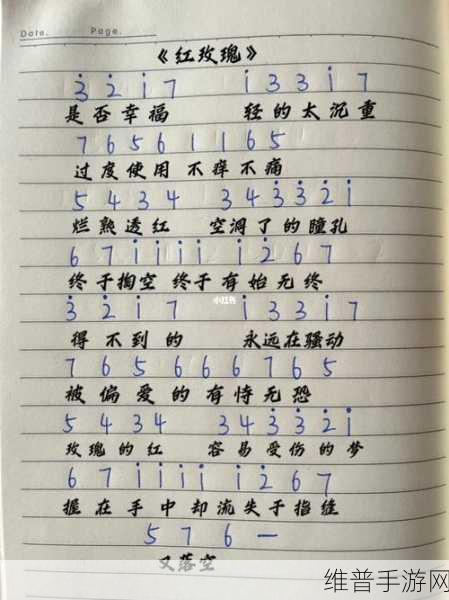 Date. Page.
《红玫瑰》
3̇ 2̇ i 7 i 3 3 i 7
是否幸福 轻的太沉重
7 6 5 6 1 1 6 5
过度使用 不痒不痛
5 4 3 4 3 4 3̇ 3̇ 2̇ i
烂熟透红 空洞了的瞳孔
6 7 i i i i i 2̇ 6 7
终于掏空 终于有始无终
3̇ 2̇ i 7 i 3 3 i 7
得不到的 永远在骚动
7 6 5 6 6 6 7 6 5
被偏爱的有恃无恐
5 4 3 4 3 4 3̇ 3̇ 2̇ i
玫瑰的红 容易受伤的梦
6 7 i i i i i 2̇ 6 7
握在手中却流失于指缝
5 7 6 —
又落空
小红书
维普手游网